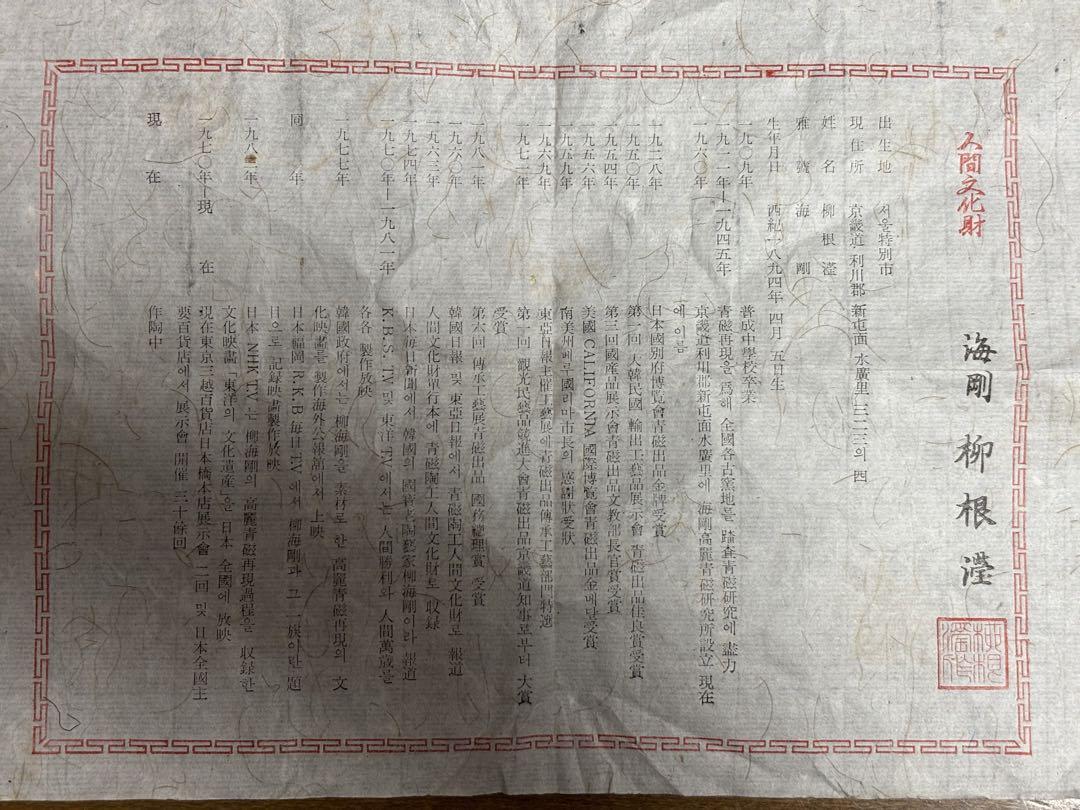 人間文化財
海剛 柳根瀅
出生地 서울特別市
現住所 京畿道 利川郡 新屯面 水廣里 三二三의 四
姓名 柳根瀅
雅號 海剛
生年月日 西紀一八九四年 四月 五日生
一九〇九年 普成中學校卒業
一九一一年―一九四五年 青磁再現을 爲해 全國各古窯地를 踏査青磁研究에 盡力
一九六〇年 京畿道利川郡新屯面水廣里에 海剛高麗青磁研究所設立 現在
에 이름
一九二八年 日本國別府博覽會青磁出品金牌受賞
一九五〇年 第一回 大韓民國 輸出工藝品展示會 青磁出品佳良賞受賞
一九五四年 第三回國産品展示會青磁出品文教部長官賞受賞
一九五六年 美國 CALIFORNIA 國際博覽會青磁出品金메달受賞
一九五九年 南美州페루國리마市長의 感謝狀受狀
一九六九年 東亞日報主催工藝展에青磁出品傳承工藝部門特選
一九七一年 第一回 觀光民藝品競進大會青磁出品京畿道知事로부터 大賞
受賞
一九八一年 第六回 傳承工藝展青磁出品 國務總理賞 受賞
一九六〇年 韓國日報 및 東亞日報에서 青磁陶工人間文化財로 報道
一九六三年 人間文化財單行本에 青磁陶工人間文化財로 収録
一九七四年 日本每日新聞에서 韓國의 國寶 陶藝家柳海剛이라 報道
一九七〇年―一九八一年 K.B.S. TV 및 東洋 TV에서는 人間勝利와 人間萬歲를
各各 製作放映
一九七七年 韓國政府에서는 柳海剛을 素材로 한 高麗青磁再現의 文
化映畫를 製作海外公報舘에서 上映
同年 日本福岡 R.K.B 每日 T.V에서 柳海剛과 그 一族이란 題
目으로 記録映畫製作放映
一九八一年 日本 NHK TV는 柳海剛의 高麗青磁再現過程을 収録한
文化映畫「東洋의 文化遺産」을 日本 全國에 放映
一九七〇年―現在 現在東京三越百貨店日本橋本店展示會 二回 및 日本全國主
要百貨店에서 展示會 開催 三十餘回
現在 作陶中
柳根瀅